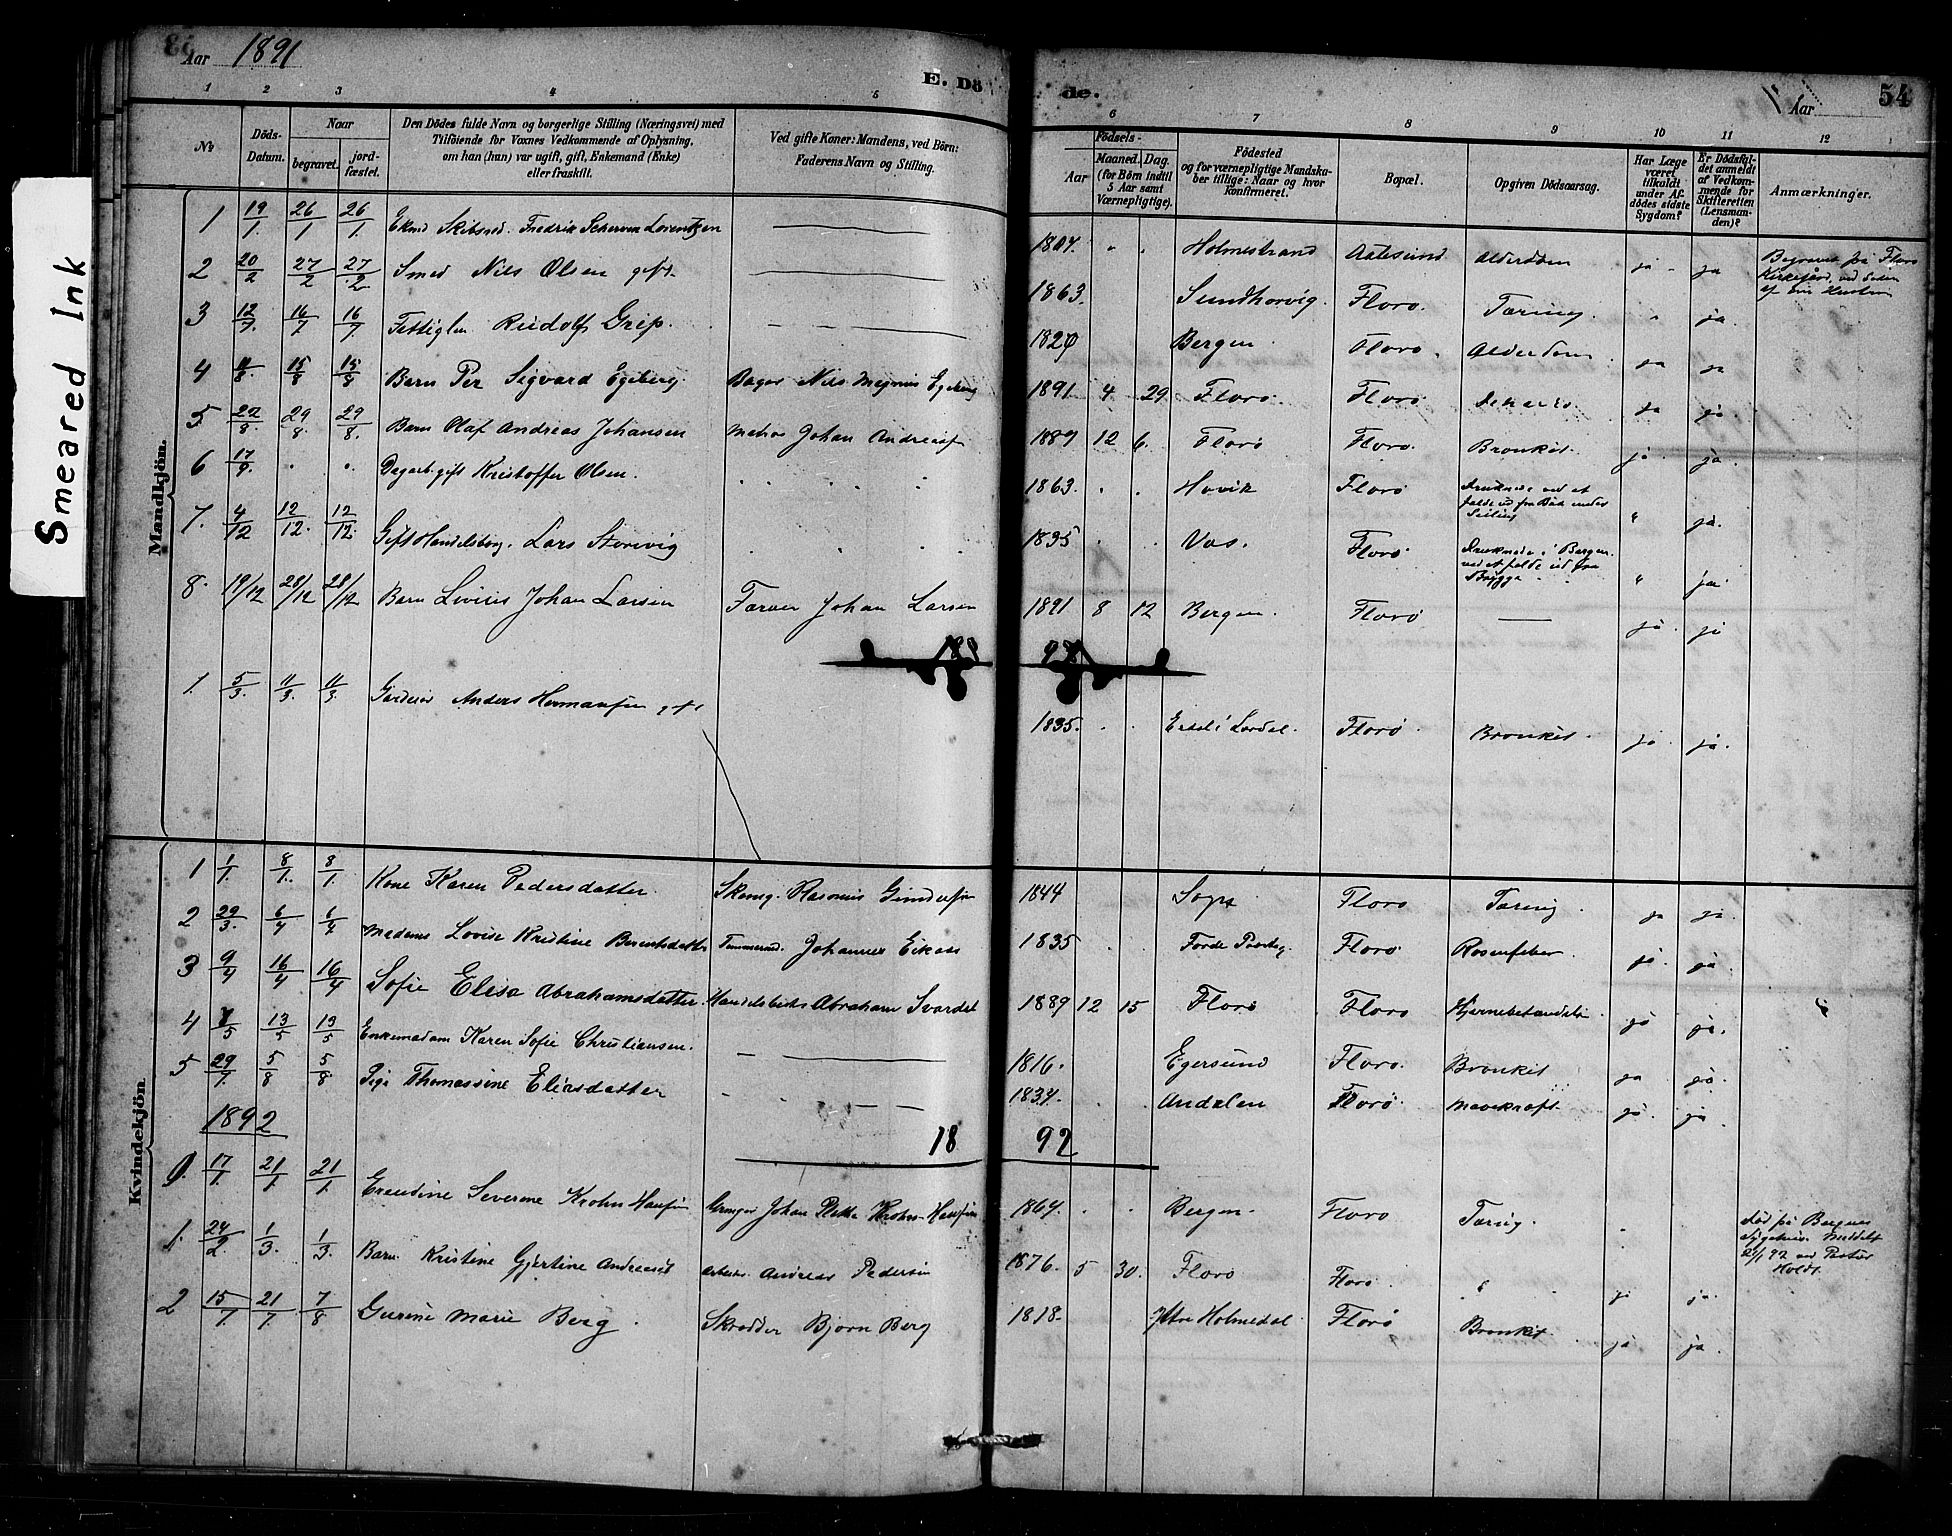 Smeared Ink
Aar 1891
E. Dö
de.
Aar
54
1 2 3 4 5 6 7 8 9 10 11 12
No
Döds-Datum.
Naar
begravet.
jord-fæstet.
Den Dödes fulde Navn og borgerlige Stilling (Næringsvei) med
Tilföiende for Voxnes Vedkommende af Oplysning,
om han (hun) var ugift, gift, Enkemand (Enke)
eller fraskilt.
Ved gifte Koner: Mandens, ved Börn:
Faderens Navn og Stilling.
Födsels-
Aar
Maaned. Dag.
(for Børn indtil
5 Aar samt
Værnepligtige).
Födested
og for værnepligtige Mandska-
ber tillige: Naar og hvor
konfirmeret.
Bopæl.
Opgiven Dödsaarsag.
Har Læge
været
tilkaldt
under Af-
dödes sidste
Sygdom?
Er Dödsfal-
det anmeldt
af Vedkom-
mende for
Skifteretten
(Lensman-
den)?
Anmærkninger.
Mandkjön.
1 19/1. 26/1 26/1. Fredrik Lorentzen 1807. Holmestrand Aalesund Alderdom ja ja Begravet på Florø
Kirkegård, ved Siden
af sin Hustru
2 20/2 27/2 27/2 Smed Nils Olsen gift. 1863. Florø. Tæring ja
3 12/7. 16/7 16/7. Rudolf Grip. Bergen Florø. Alderdom ja ja
4 11/8. 15/8 15/8 Barn Per Sigvard Egeberg. Bager Nils Magnus Egeberg 1891 4 29 Florø. Florø. ja ja
5 22/8. 29/8. 29/8. Barn Olaf Andreas Johansen Matros Johan 1889 12 6. Florø Florø. Bronkit. ja ja
6 17/9. Dagarb. gift Kristoffer Olsen. 1863. Hovik Florø Druknede ved at
falde ud fra Båd under
Seiling ja.
7. 4/12 12/12. 12/12. Gift Handelsborg. Lars Storevig 1835 Vos. Florø Druknede i Bergen
ved at falde ud fra
Brygge ja
8. 19/12 28/12 28/12 Barn Johan Larsen Farver Johan Larsen 1891 8 12 Bergen. Florø ja ja
1. 5/3. 11/3. 11/3. Anders Hermansen 1835. Florø Bronkit. ja ja
Kvindekjön.
1 1/1. 8/1. 8/1. Kone Karen Pedersdatter. Rasmus 1844 Florø Tæring ja ja
2 29/3. 6/4 6/4 Madame Lovise Kristine Berentsdatter Johannes Eikaas 1835 Florø Rosenfeber ja ja
3 9/4 16/4 16/4 Sofie Elise Abrahamsdatter. Abraham Svardal 1889 12 15 Florø Florø Hjernebetændelse ja ja.
4 13/5 13/5 Enkemadam Karen Sofie Christiansen. 1816. Egersund Florø. Bronkit ja ja
5 29/7. 5/8 5/8 Pige Thomassine Eliasdatter 1834. Andalen Florø. Mavekræft. ja ja
1892
18 92
0. 17/1. 21/1 21/1 Severine Krohn Hansen Johan Krohn-Hansen 1864. Bergen. Florø Tæring Død på Bergens
Sygehus. Meddelt
92 ved Pastor
Holdt.
1. 24/2. 1/3. 1/3. Barn Kristine Gjertine Arbeider Andreas Pedersen 1876. 5 30. Florø Florø. ja ja.
2 15/7. 21/7 7/8 Gurine Marie Berg. Skrædder Bjørn Berg 1818. Ytre Holmedal Florø Bronkit. ja ja.